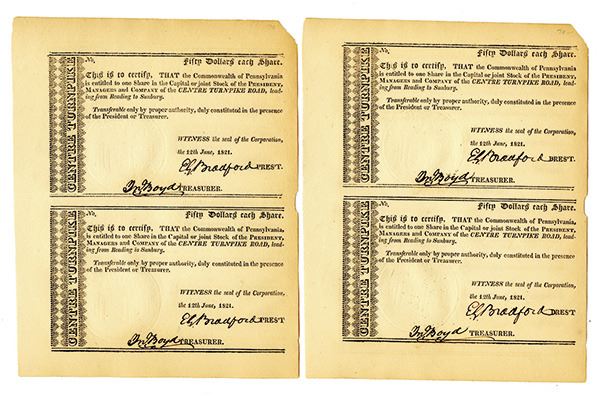 CENTRE TURNPIKE
No. Fifty Dollars each Share.
This is to certify, THAT the Commonwealth of Pennsylvania,
is entitled to one Share in the Capital or joint Stock of the PRESIDENT,
MANAGERS and COMPANY of the CENTRE TURNPIKE ROAD, lead-
ing from Reading to Sunbury.
Transferable only by proper authority, duly constituted in the presence
of the President or Treasurer.
WITNESS the seal of the Corporation,
the 12th June, 1821.
EG Bradford PRES'T.
Jn. Boyd TREASURER.
CENTRE TURNPIKE
No. Fifty Dollars each Share.
This is to certify, THAT the Commonwealth of Pennsylvania,
is entitled to one Share in the Capital or joint Stock of the PRESIDENT,
MANAGERS and COMPANY of the CENTRE TURNPIKE ROAD, lead-
ing from Reading to Sunbury.
Transferable only by proper authority, duly constituted in the presence
of the President or Treasurer.
WITNESS the seal of the Corporation,
the 12th June, 1821.
EG Bradford PREST
Jn. Boyd TREASURER.
CENTRE TURNPIKE
No. Fifty Dollars each Share.
This is to certify, THAT the Commonwealth of Pennsylvania
is entitled to one Share in the Capital or joint Stock of the PRESIDENT,
MANAGERS and COMPANY of the CENTRE TURNPIKE ROAD, lead-
ing from Reading to Sunbury.
Transferable only by proper authority, duly constituted in the presence
of the President or Treasurer.
WITNESS the seal of the Corporation,
the 12th June, 1821.
EG Bradford PREST.
Jn. Boyd TREASURER.
CENTRE TURNPIKE
No. Fifty Dollars each Share.
This is to certify, THAT the Commonwealth of Pennsylvania,
is entitled to one Share in the Capital or joint Stock of the PRESIDENT,
MANAGERS and COMPANY of the CENTRE TURNPIKE ROAD, lead-
ing from Reading to Sunbury.
Transferable only by proper authority, duly constituted in the presence
of the President or Treasurer.
WITNESS the seal of the Corporation,
the 12th June, 1821.
EG Bradford PREST
Jn. Boyd TREASURER.